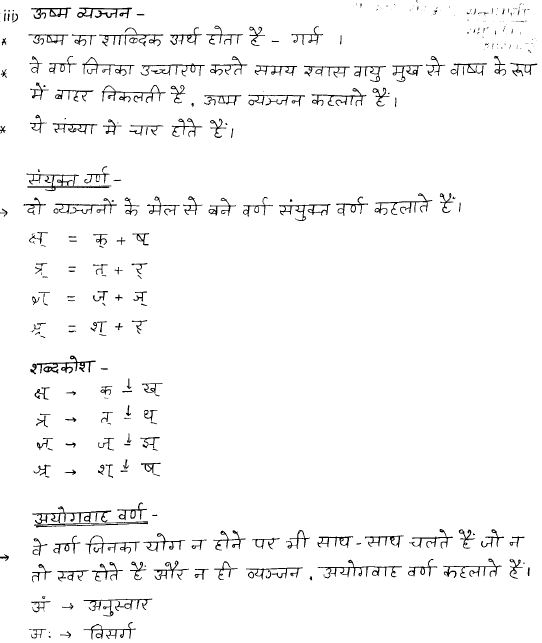 iii) ऊष्म व्यञ्जन -
* ऊष्म का शाब्दिक अर्थ होता है - गर्म ।
* वे वर्ण जिनका उच्चारण करते समय श्वास वायु मुख से वाष्प के रूप
में बाहर निकलती है, ऊष्म व्यञ्जन कहलाते हैं।
* ये संख्या में चार होते हैं।
संयुक्त वर्ण -
→ दो व्यञ्जनों के मेल से बने वर्ण संयुक्त वर्ण कहलाते हैं।
क्ष् = क् + ष्
त्र् = त् + र्
ज्ञ् = ज् + ञ्
श्र् = श् + र्
शब्दकोश -
क्ष् → क् ↓ ख्
त्र् → त् ↓ थ्
ज्ञ् → ज् ↓ झ्
श्र् → श् ↓ ष्
अयोगवाह वर्ण -
→ वे वर्ण जिनका योग न होने पर भी साथ-साथ चलते हैं जो न
तो स्वर होते हैं और न ही व्यञ्जन, अयोगवाह वर्ण कहलाते हैं।
अं → अनुस्वार
अः → विसर्ग